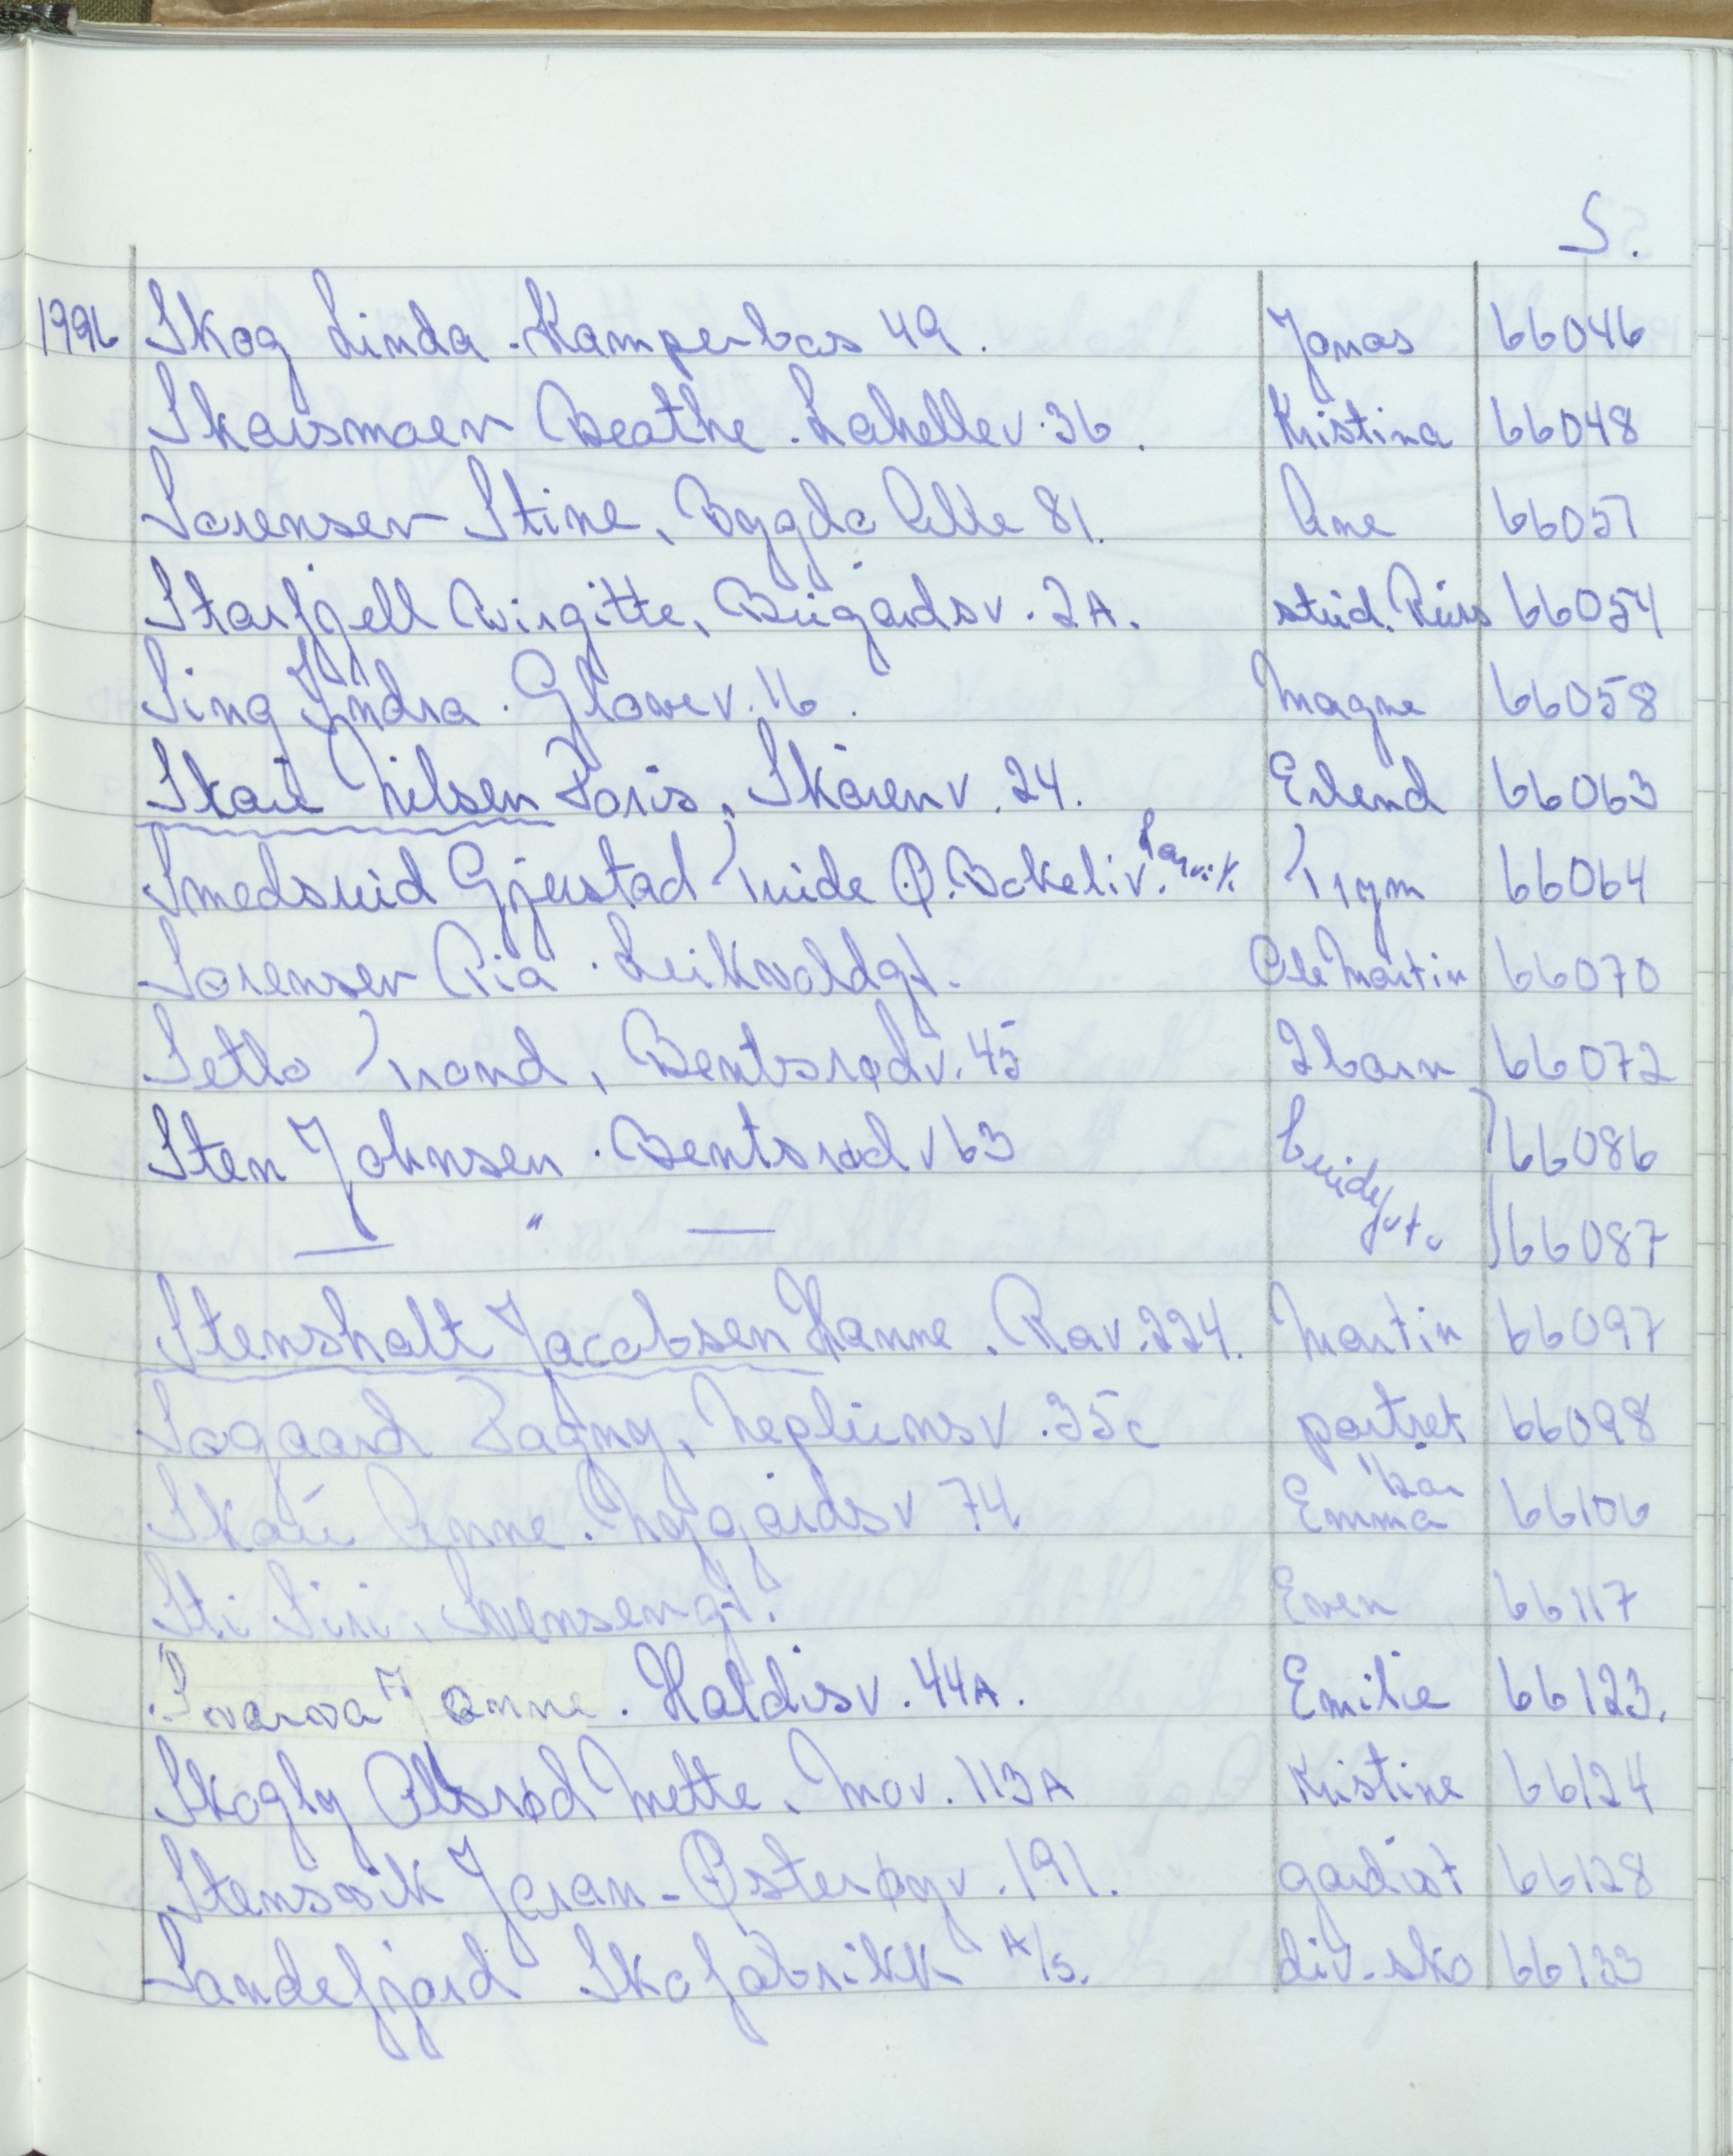 S.
1996 Skog Linda. Kamperbas 49. Jonas 66046
Skarsmoen Beathe. Lahellev. 36. Kristina 66048
Sørensen Stine, Bygdø Alle 81. Ane 66051
Storfjell Birgitte, Bugårdsv. 2A. stud. Russ 66054
Sing Indra. Glomev. 16. Magne 66058
Skau Nilsen Doris, Skårenv. 24. Erlend 66063
Smedsrud Gjerstad Tuide Ø. Bakeliv. Larvik. Trym 66064
Sørensen Pia. Leikvoldgt. Ole Martin 66070
Setlo Trond, Bentsrødv. 45 2 barn 66072
Sten Johnsen. Bentsrødv 63 brude 66086
— " — foto 66087
Stensholt Jacobsen Hanne. Rav. 224. Martin 66097
Søgaard Dagny, Neptunsv. 35c portret 66098
Skau Anne. Nygårdsv 74 Emma 1/2 år 66106
Sti Siri, Svensengt. Even 66117
Svarva Janne. Haldisv. 44A. Emilie 66123.
Skogly Olsrød Mette. Mov. 113A Kristine 66124
Stensvik Jøran - Østerøyv. 191. gardist 66128
Sandefjord Skofabrikk A/S. div. sko 66133